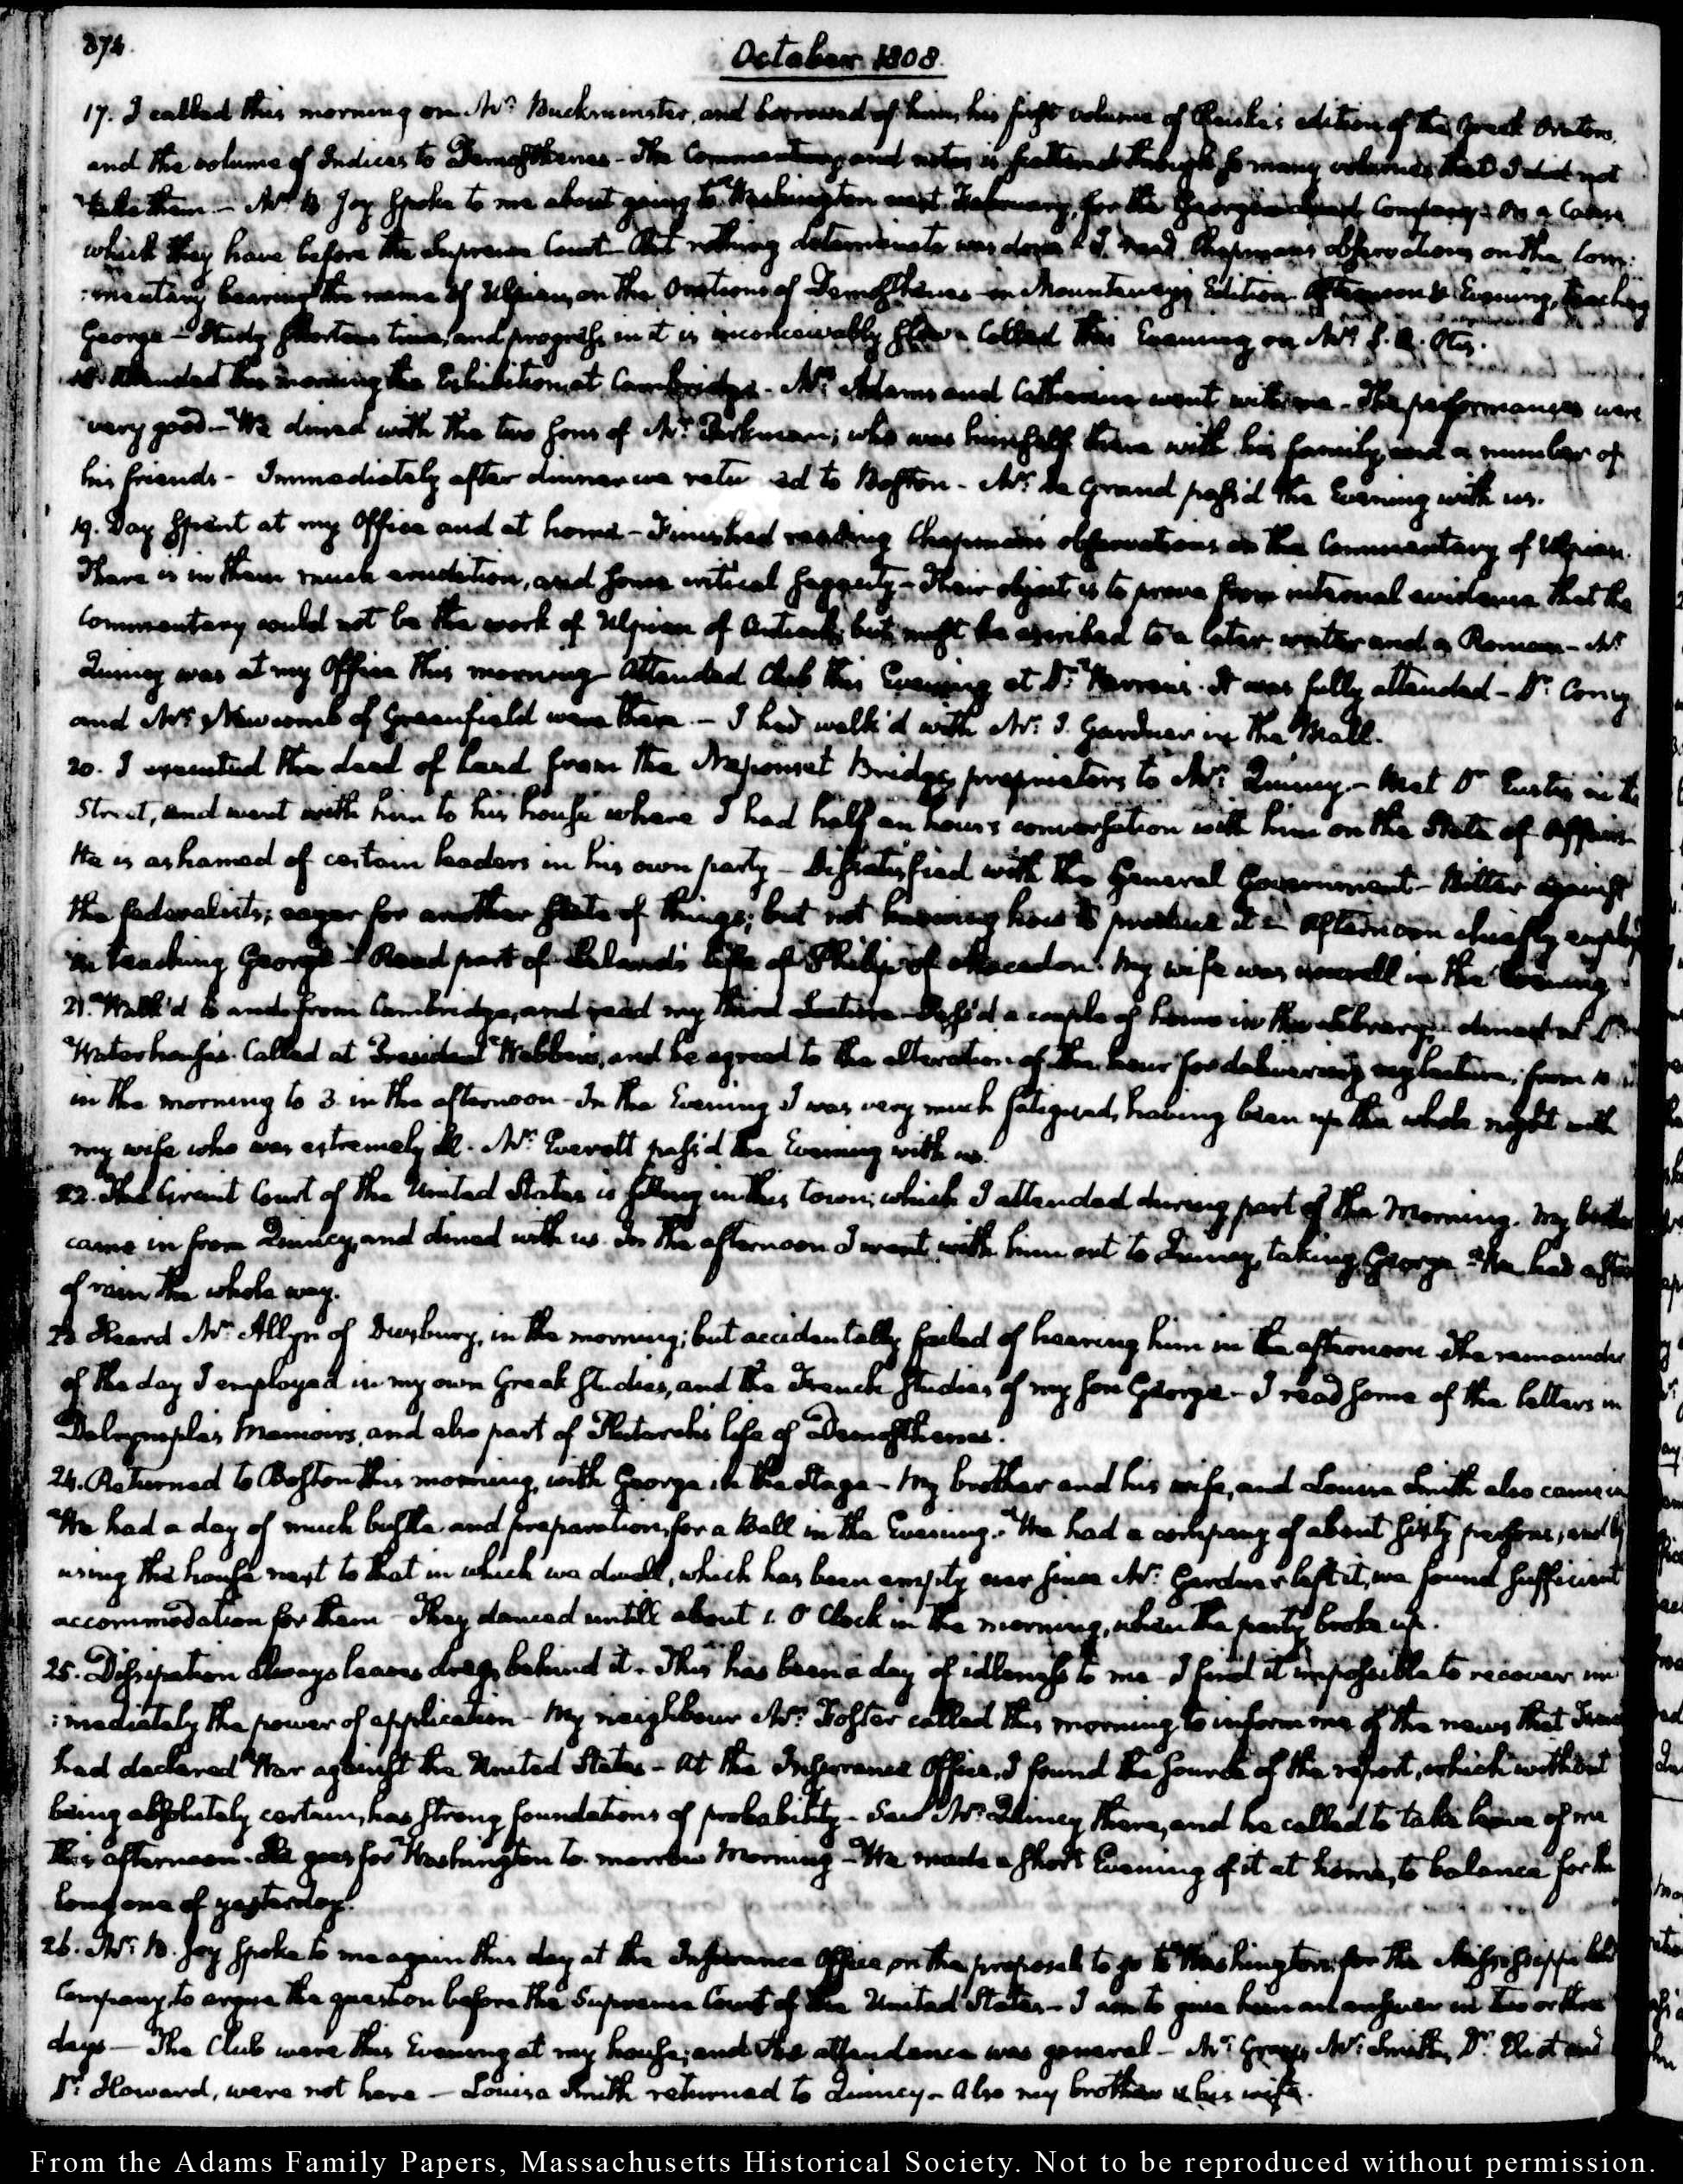 374.
October 1808.
17. I called this morning on Mr. Buckminster, and borrowed of him, his first volume of Reiske's edition of the Greek Orators,
and the volume of Indices to Demosthenes - The Commentary and notes is scattered through so many volumes, that I did not
take them. - Mr. B. Joy spoke to me about going to Washington next February, for the Georgia Land Company; on a Cause
which they have before the Supreme Court - But nothing determinate was done - I read Chapman's observations on the Com:
:mentary bearing the name of Ulpian, on the Orations of Demosthenes - in Mounteney's Edition. Afternoon & Evening, teaching
George - Study shortens time, and progress in it is inconceivably slow - Called this Evening on Mr. S. A. Otis.
18. Attended this morning the Exhibition, at Cambridge - Mrs. Adams and Catherine went with me - The performances were
very good. - We dined with the two sons of Mr. Parkman; who was himself there with his family, and a number of
his friends - Immediately after dinner we retu ed to Boston - Mr. De Grand pass'd the Evening with us.
19. Day spent at my Office and at home - Finished reading Chapman's observations on the Commentary of Ulpian.
There is in them much erudition, and some critical sagacity - Their object is to prove from internal evidence that the
Commentary could not be the work of Ulpian of Antioch; but must be ascribed to a later writer and a Roman - Mr.
Quincy was at my Office this morning - Attended Club this Evening at Dr. Warren's. It was fully attended - Dr. Cony
and Mr. Newcomb of Greenfield were there - I had walk'd with Mr. J. Gardner in the Mall.
20. I executed the deed of Land from the Neponset Bridge proprietors to Mr. Quincy. - Met Dr. Eustis in the
Street, and went with him to his house where I had half an hour's conversation with him on the State of Affairs
He is ashamed of certain leaders in his own party - Dissatisfied with the General Government - Bitter against
the federalists; eager for another state of things; but not knowing how to produce it - Afternoon chiefly employ
in teaching George - Read part of Leland's life of Philip of Macedon. My wife was unwell in the Evening
21. Walk'd to and from Cambridge, and read my third Lecture - Pass'd a couple of hours in the Library - dined at Dr.
Waterhouse's. Called at President Webber's, and he agreed to the alteration of the hour for delivering my lecture, from 10
in the morning to 3. in the afternoon - In the Evening I was very much fatigued, having been up the whole night with
my wife who was extremely ill. Mr. Everett pass'd the Evening with us.
22. The Circuit Court of the United States is sitting in this town; which I attended during part of the Morning. My brother
came in from Quincy, and dined with us. In the afternoon I went with him out to Quincy, taking George. We had a
of rain the whole way.
23. Heard Mr. Allyn of Duxbury, in the morning; but accidentally failed of hearing him in the afternoon The remainder
of the day I employed in my own Greek studies, and the French studies of my son George - I read some of the letters in
Dalrymple's Memoirs, and also part of Plutarch's life of Demosthenes.
24. Returned to Boston this morning, with George in the Stage - My brother and his wife, and Louisa Smith also came in
We had a day of much bustle and preparation, for a Ball in the Evening. We had a company of about sixty persons; and by
using the house next to that in which we dwell, which has been empty ever since Mr. Gardner left it, we found sufficient
accommodation for them - They danced untill about 1. O'Clock in the morning, when the party broke up.
25. Dissipation always leaves dregs behind it. This has been a day of idleness to me - I find it impossible to recover im
:mediately the power of application - My neighbour Mr. Foster called this morning to inform me of the news that France
had declared War against the United States - At the Insurance Office, I found the source of the report, which without
being absolutely certain, has strong foundations of probability - Saw Mr. Quincy there, and he called to take leave of me
this afternoon. He goes for Washington to-morrow Morning - We made a short Evening of it at home, to balance for the
long one of yesterday.
26. Mr. B. Joy spoke to me again this day at the Insurance Office, on the proposal to go to Washington for the Mississippi land
Company, to argue the question before the Supreme Court of the United States - I am to give him an answer in two or three
days - The Club were this Evening at my house; and the attendance was general - Mr. Gray, Mr. Smith, Dr. Eliot and
Dr. Howard, were not here - Louisa Smith returned to Quincy - Also my brother & his wife.
From the Adams Family Papers, Massachusetts Historical Society. Not to be reproduced without permission.